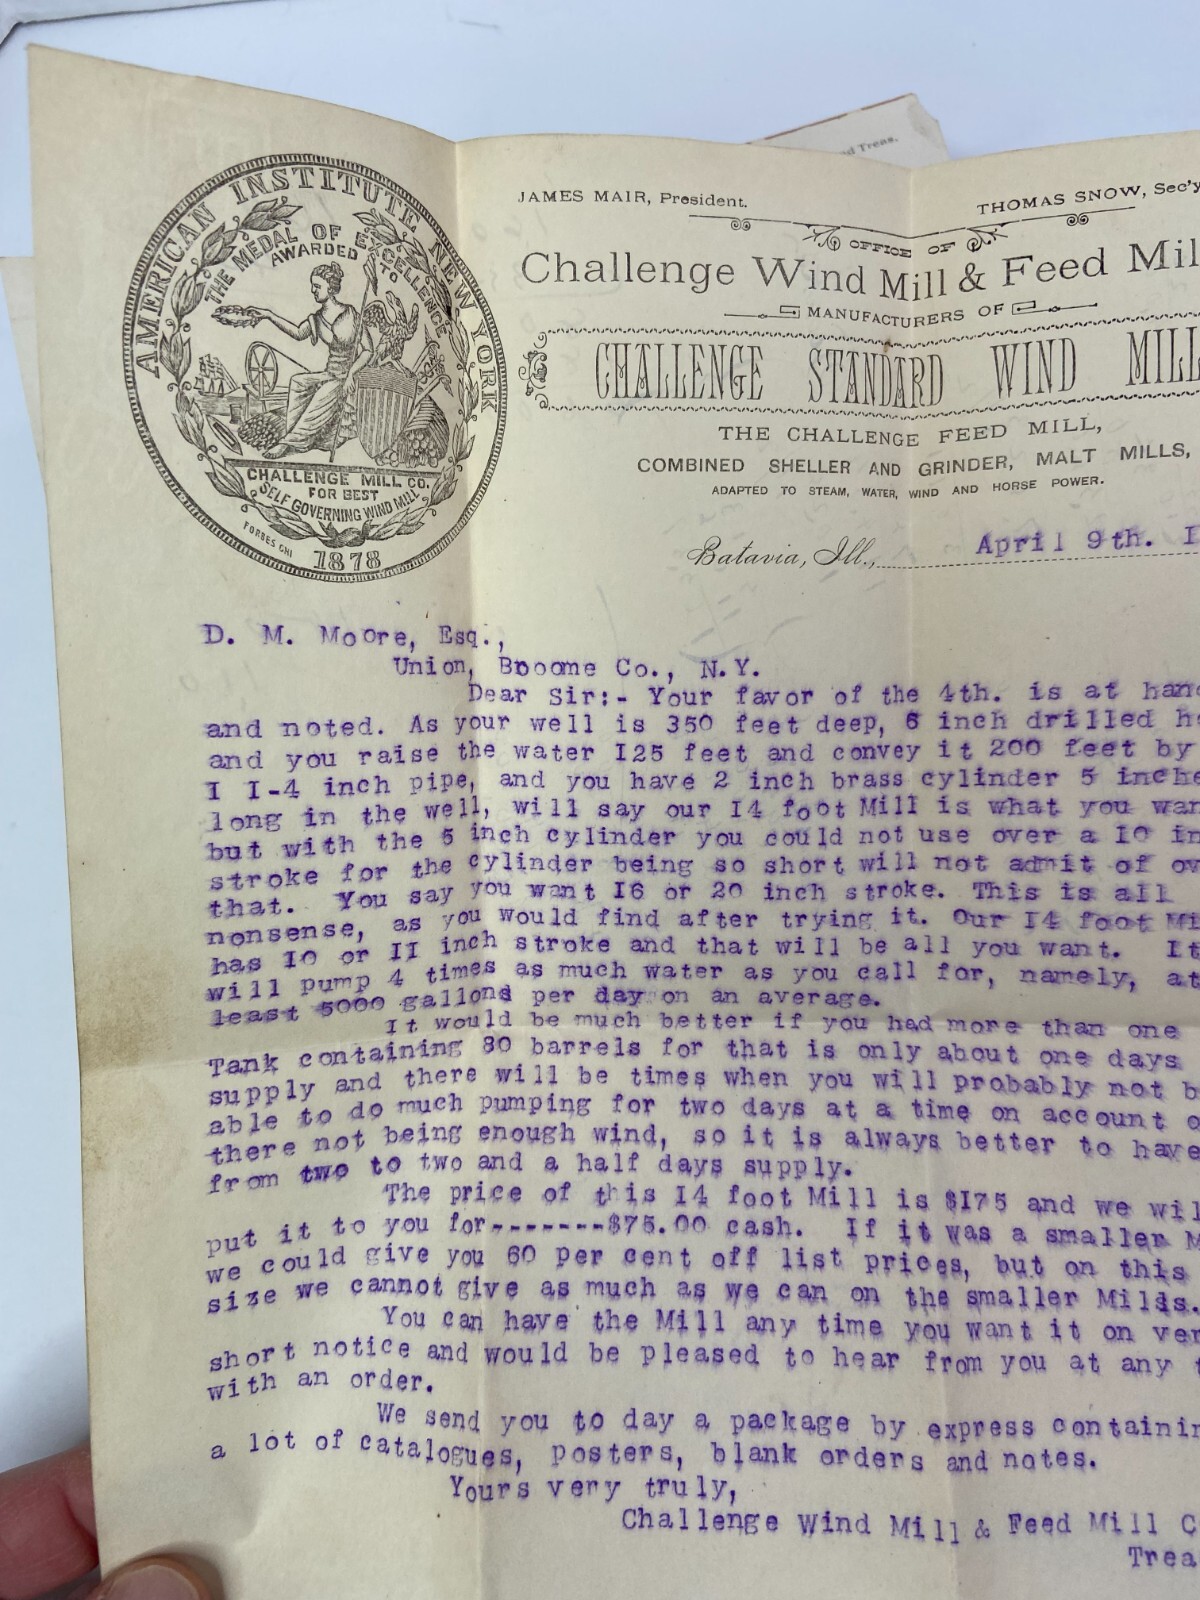 nd Treas.
JAMES MAIR, President.
THOMAS SNOW, Sec'y
OFFICE OF
Challenge Wind Mill & Feed Mil
MANUFACTURERS OF
CHALLENGE STANDARD WIND MILL
THE CHALLENGE FEED MILL,
COMBINED SHELLER AND GRINDER, MALT MILLS,
ADAPTED TO STEAM, WATER, WIND AND HORSE POWER.
AMERICAN INSTITUTE NEW YORK
THE MEDAL OF EXCELLENCE
AWARDED
TO
CHALLENGE MILL CO.
FOR BEST
SELF GOVERNING WIND MILL
FORBES CHI
1878
Batavia, Ill., April 9th. I
D. M. Moore, Esq.,
Union, Broome Co., N.Y.
Dear Sir:- Your favor of the 4th. is at han
and noted. As your well is 350 feet deep, 6 inch drilled h
and you raise the water I25 feet and convey it 200 feet by
I I-4 inch pipe, and you have 2 inch brass cylinder 5 inche
long in the well, will say our I4 foot Mill is what you wan
but with the 5 inch cylinder you could not use over a I0 in
stroke for the cylinder being so short will not admit of ov
that. You say you want I6 or 20 inch stroke. This is all
nonsense, as you would find after trying it. Our I4 foot Mi
has I0 or II inch stroke and that will be all you want. It
will pump 4 times as much water as you call for, namely, at
least 5000 gallons per day on an average.
It would be much better if you had more than one
Tank containing 80 barrels for that is only about one days
supply and there will be times when you will probably not b
able to do much pumping for two days at a time on account o
there not being enough wind, so it is always better to have
from two to two and a half days supply.
The price of this I4 foot Mill is $I75 and we wil
put it to you for-------$75.00 cash. If it was a smaller M
we could give you 60 per cent off list prices, but on this
size we cannot give as much as we can on the smaller Milds.
You can have the Mill any time you want it on ver
short notice and would be pleased to hear from you at any t
with an order.
We send you to day a package by express containin
a lot of catalogues, posters, blank orders and notes.
Yours very truly,
Challenge Wind Mill & Feed Mill C
Trea